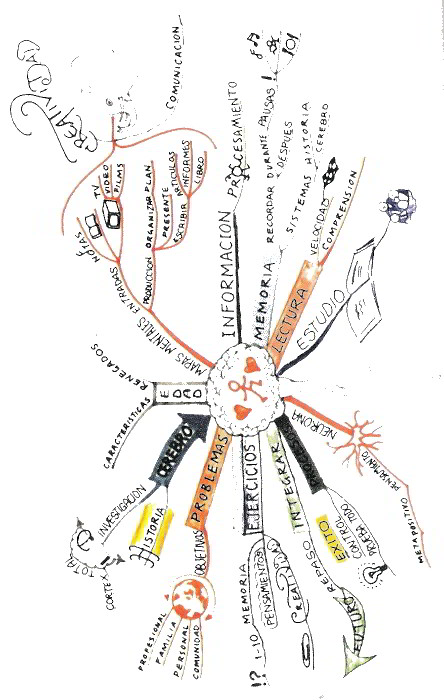 CREATIVIDAD
COMUNICACION
NOTAS
TV
VIDEO
FILMS
MAPAS MENTALES ENTRADAS
PRODUCCION ORGANIZAR PLAN
PRESENTE
ESCRIBIR
ARTICULOS
INFORMES
LIBRO
INFORMACION
PROCESAMIENTO
MEMORIA
RECORDAR DURANTE PAUSAS
DESPUES
SISTEMAS HISTORIA
CEREBRO
LECTURA
VELOCIDAD
COMPRENSION
ESTUDIO
NEURONA
PENSAMIENTO
METAPOSITIVO
EXITO
CONTROL
PRUEBA TODO
INTEGRAR
REPASO
FUTURO
EJERCICIOS
MEMORIA
1-10
!?
PENSAMIENTO
CREATIVIDAD
PROBLEMAS
OBJETIVOS
PROFESIONAL
FAMILIA
PERSONAL
COMUNIDAD
CEREBRO
INVESTIGACION
TOTAL
CORTEX
HISTORIA
EDAD
RENEGADOS
CARACTERISTICAS